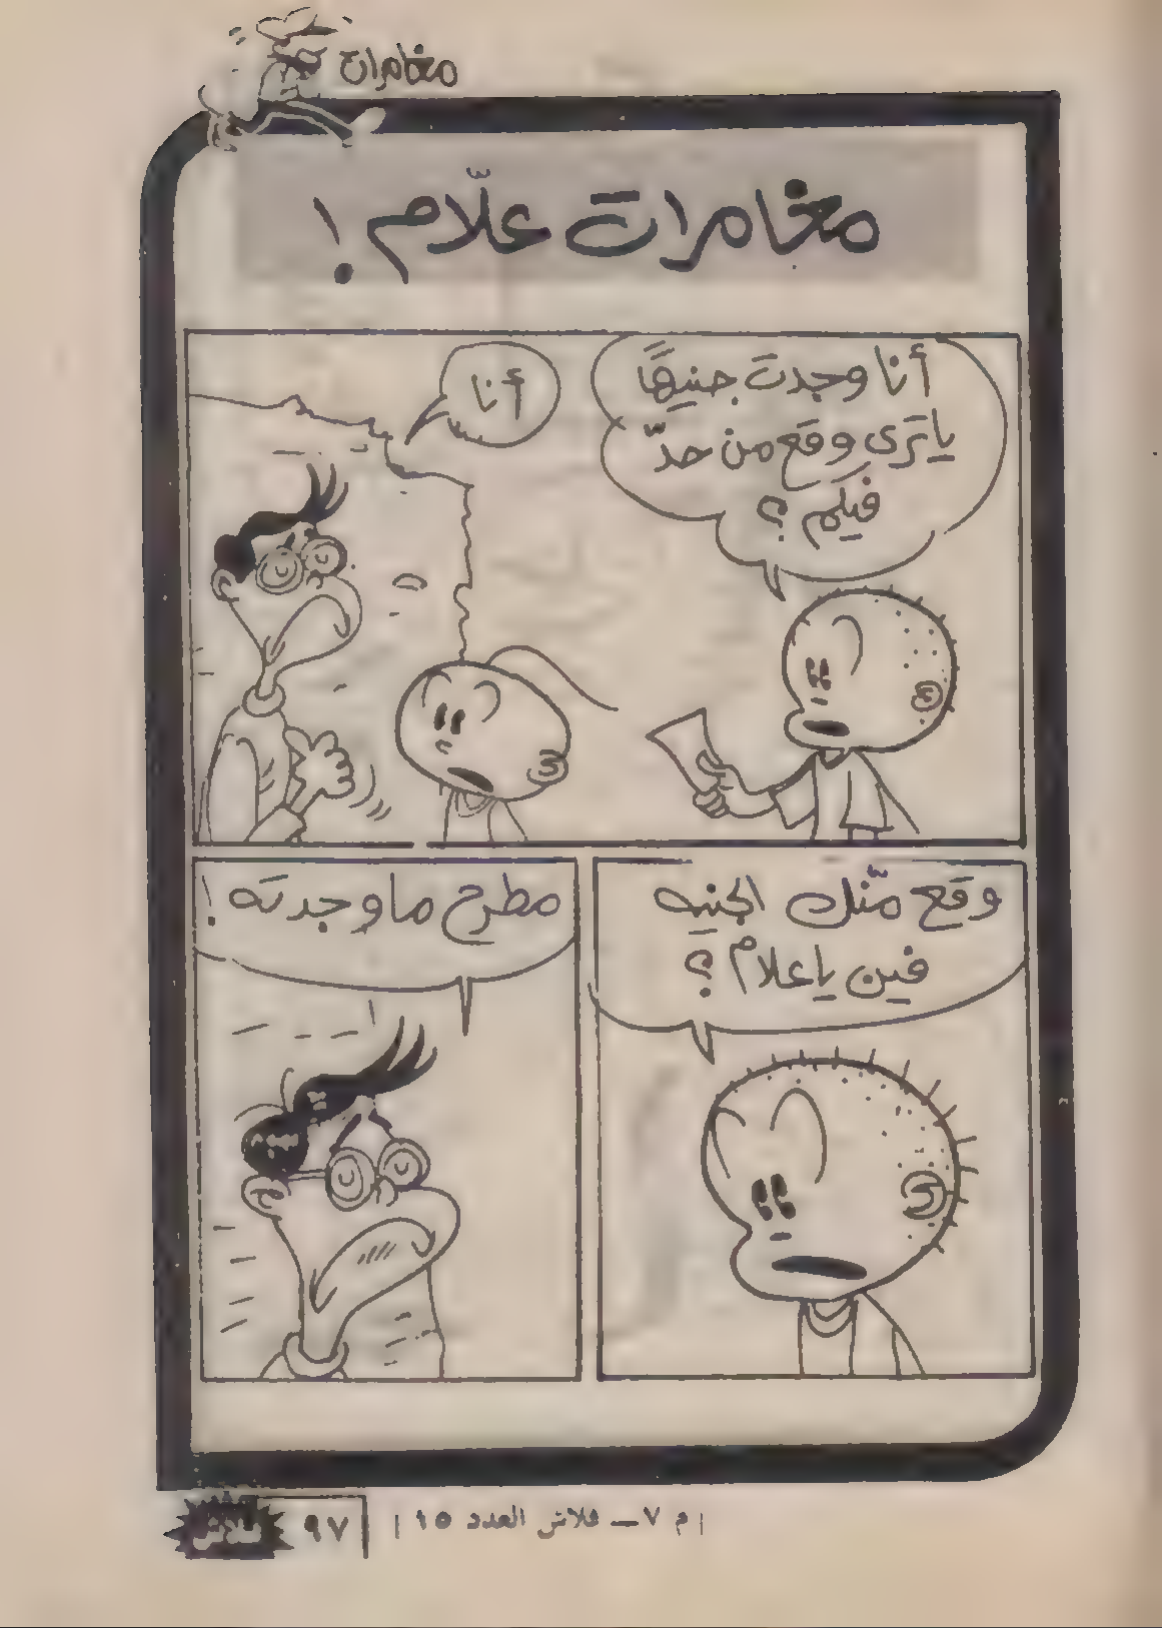 مغامرات
مغامرات علّام !
أنا وجدت جنيهًا
ياترى وقع من حدّ
فيكم ؟
أنا
وقع منّك الجنيه
فين ياعلام ؟
مطرح ما وجدته !
| م ٧ ــ فلاش العدد ١٥ |
٩٧
فلاش